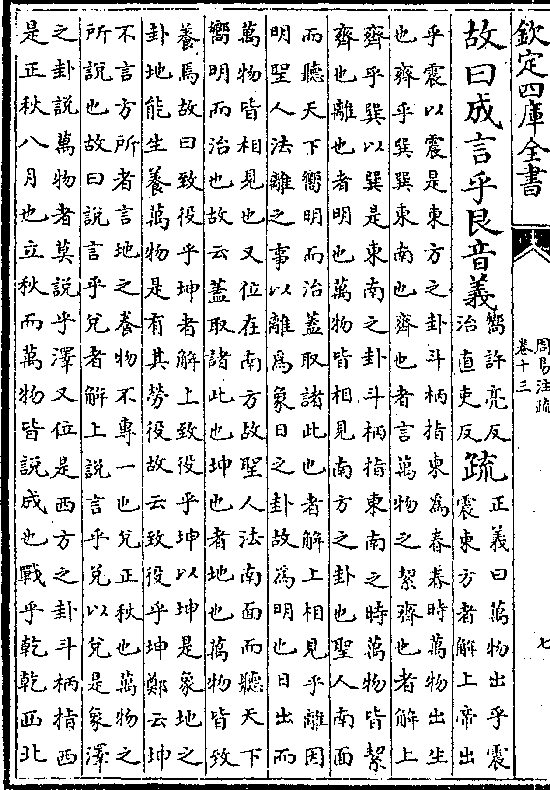 欽定四庫全書
周易注疏
卷十三
七
故曰成言乎艮音義嚮許亮反治直吏反疏正義曰萬物出乎震震東方者解上帝出
乎震以震是東方之卦斗柄指東為春春時萬物出生
也齊乎巽巽東南也齊也者言萬物之絜齊也者解上
齊乎巽以巽是東南之卦斗柄指東南之時萬物皆絜
齊也離也者明也萬物皆相見南方之卦也聖人南面
而聽天下嚮明而治蓋取諸此也者解上相見乎離因
明聖人法離之事以離為象日之卦故為明也日出而
萬物皆相見也又位在南方故聖人法南面而聽天下
嚮明而治也故云蓋取諸此也坤也者地也萬物皆致
養焉故曰致役乎坤者解上致役乎坤以坤是象地之
卦地能生養萬物是有其勞役故云致役乎坤鄭云坤
不言方所者言地之養物不專一也兌正秋也萬物之
所說也故曰說言乎兌者解上說言乎兌以兌是象澤
之卦說萬物者莫說乎澤又位是西方之卦斗柄指西
是正秋八月也立秋而萬物皆說成也戰乎乾乾西北